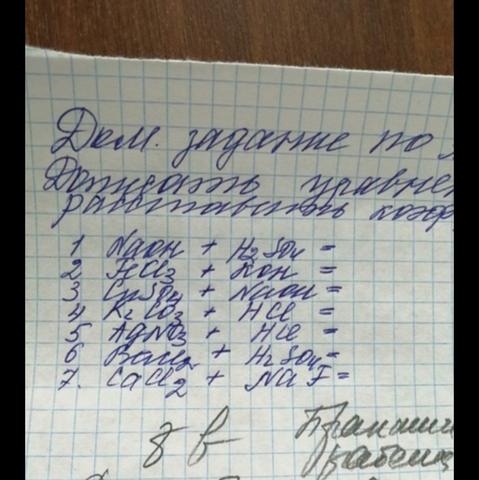 Дом. задание по
Дописать уравне
расставить коэф
1 NaOH + H2SO4 =
2 FeCl3 + KOH =
3 CuSO4 + NaOH =
4 K2CO3 + HCl =
5 AgNO3 + HCl =
6 BaCl2 + H2SO4 =
7. CaCl2 + NaF =
8 в